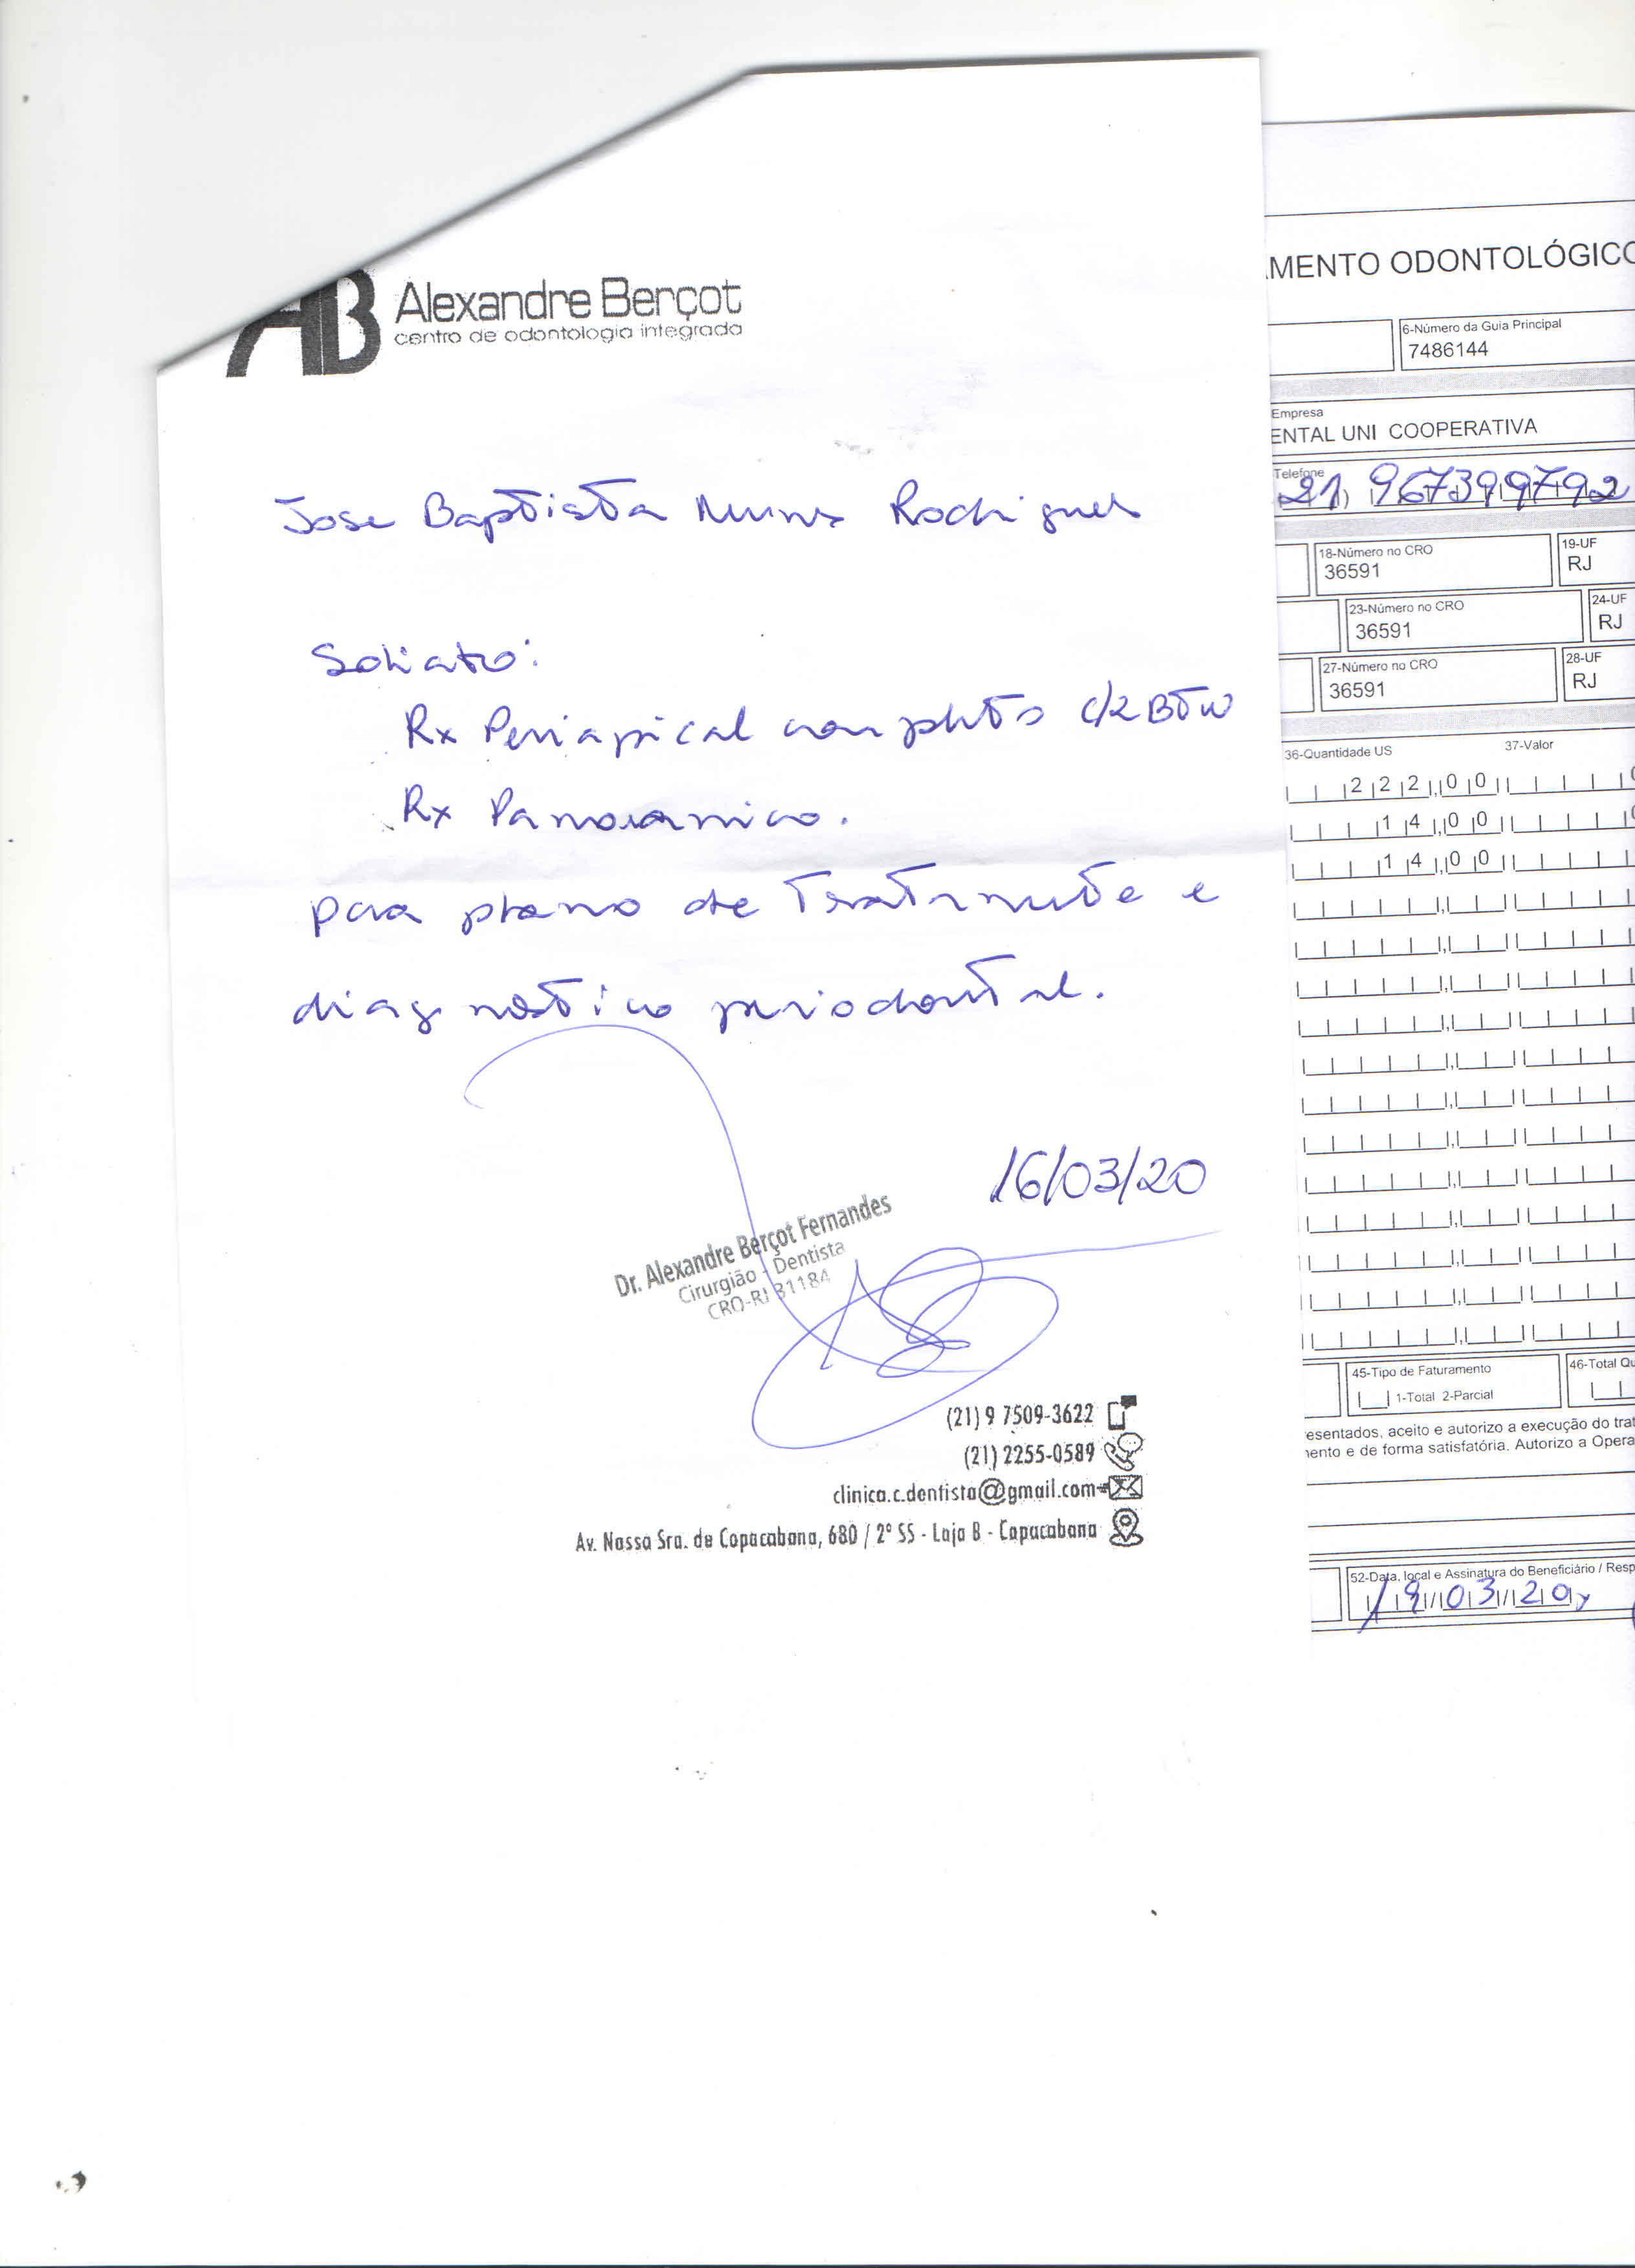 AB Alexandre Berçot
centro de odontologia integrada
Jose Baptista Nunes Rodrigues
Solicito:
Rx Periapical completo c/2 BTW
Rx Panoramico.
para plano de tratamento e
diagnostico periodontal.
16/03/20
Dr. Alexandre Berçot Fernandes
Cirurgião - Dentista
CRO-RJ 31184
(21) 9 7509-3622
(21) 2255-0589
clinica.c.dentista@gmail.com
Av. Nossa Sra. de Copacabana, 680 / 2º SS - Loja B - Copacabana
MENTO ODONTOLÓGICO
6-Número da Guia Principal
7486144
Empresa
ENTAL UNI COOPERATIVA
Telefone
21) 967399792
18-Número no CRO
36591
19-UF
RJ
23-Número no CRO
36591
24-UF
RJ
27-Número no CRO
36591
28-UF
RJ
36-Quantidade US 37-Valor
222,00
14,00
14,00
45-Tipo de Faturamento
1-Total 2-Parcial
46-Total Qu
esentados, aceito e autorizo a execução do trat
ento e de forma satisfatória. Autorizo a Opera
52-Data, local e Assinatura do Beneficiário / Resp
19/03/20